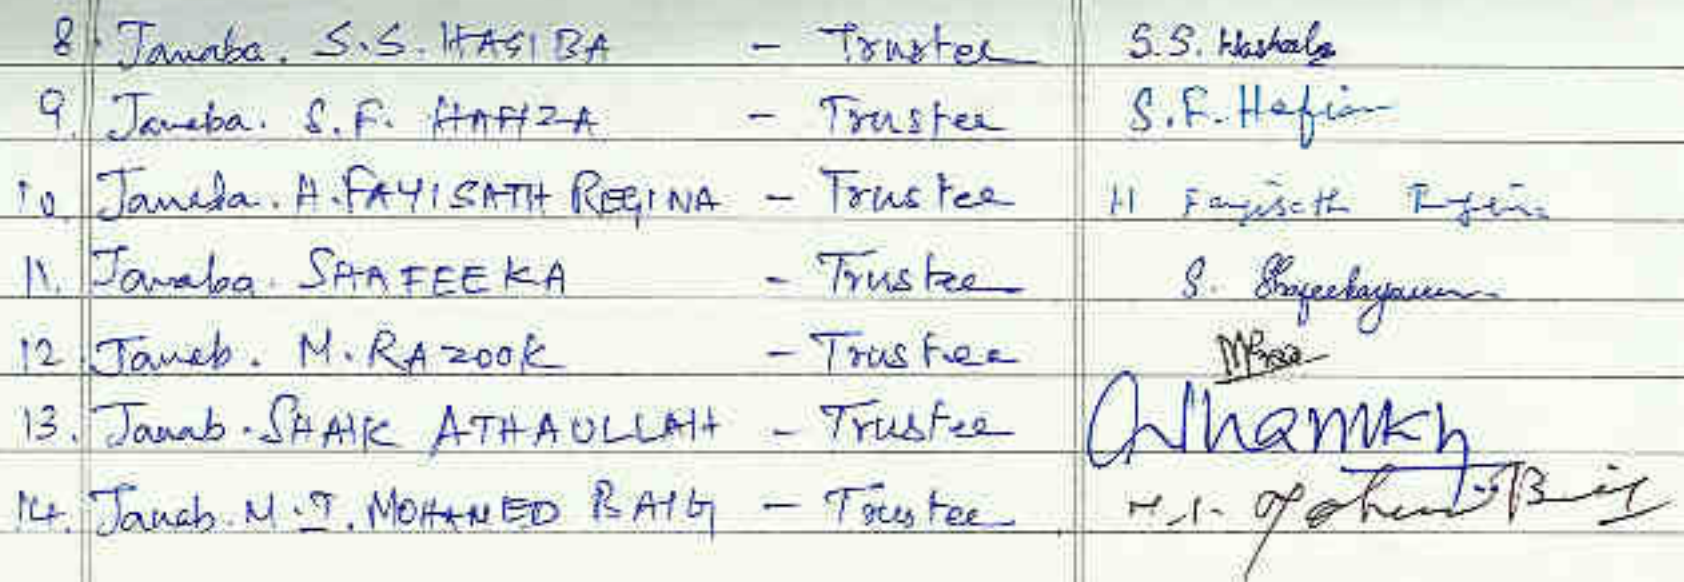 8. Janaba. S.S. HASIBA - Trustee S.S.
9. Janaba. S.F. HAFIZA - Trustee S.F.
10. Janaba. H. FAYISATH REGINA - Trustee H Fayisath Regina
11. Janaba. SHAFEEKA - Trustee S.
12. Janab. M. RAZOOK - Trustee
13. Janab. SHAIK ATHAULLAH - Trustee
14. Janab. M.I. MOHAMED BAIG - Trustee M.I.